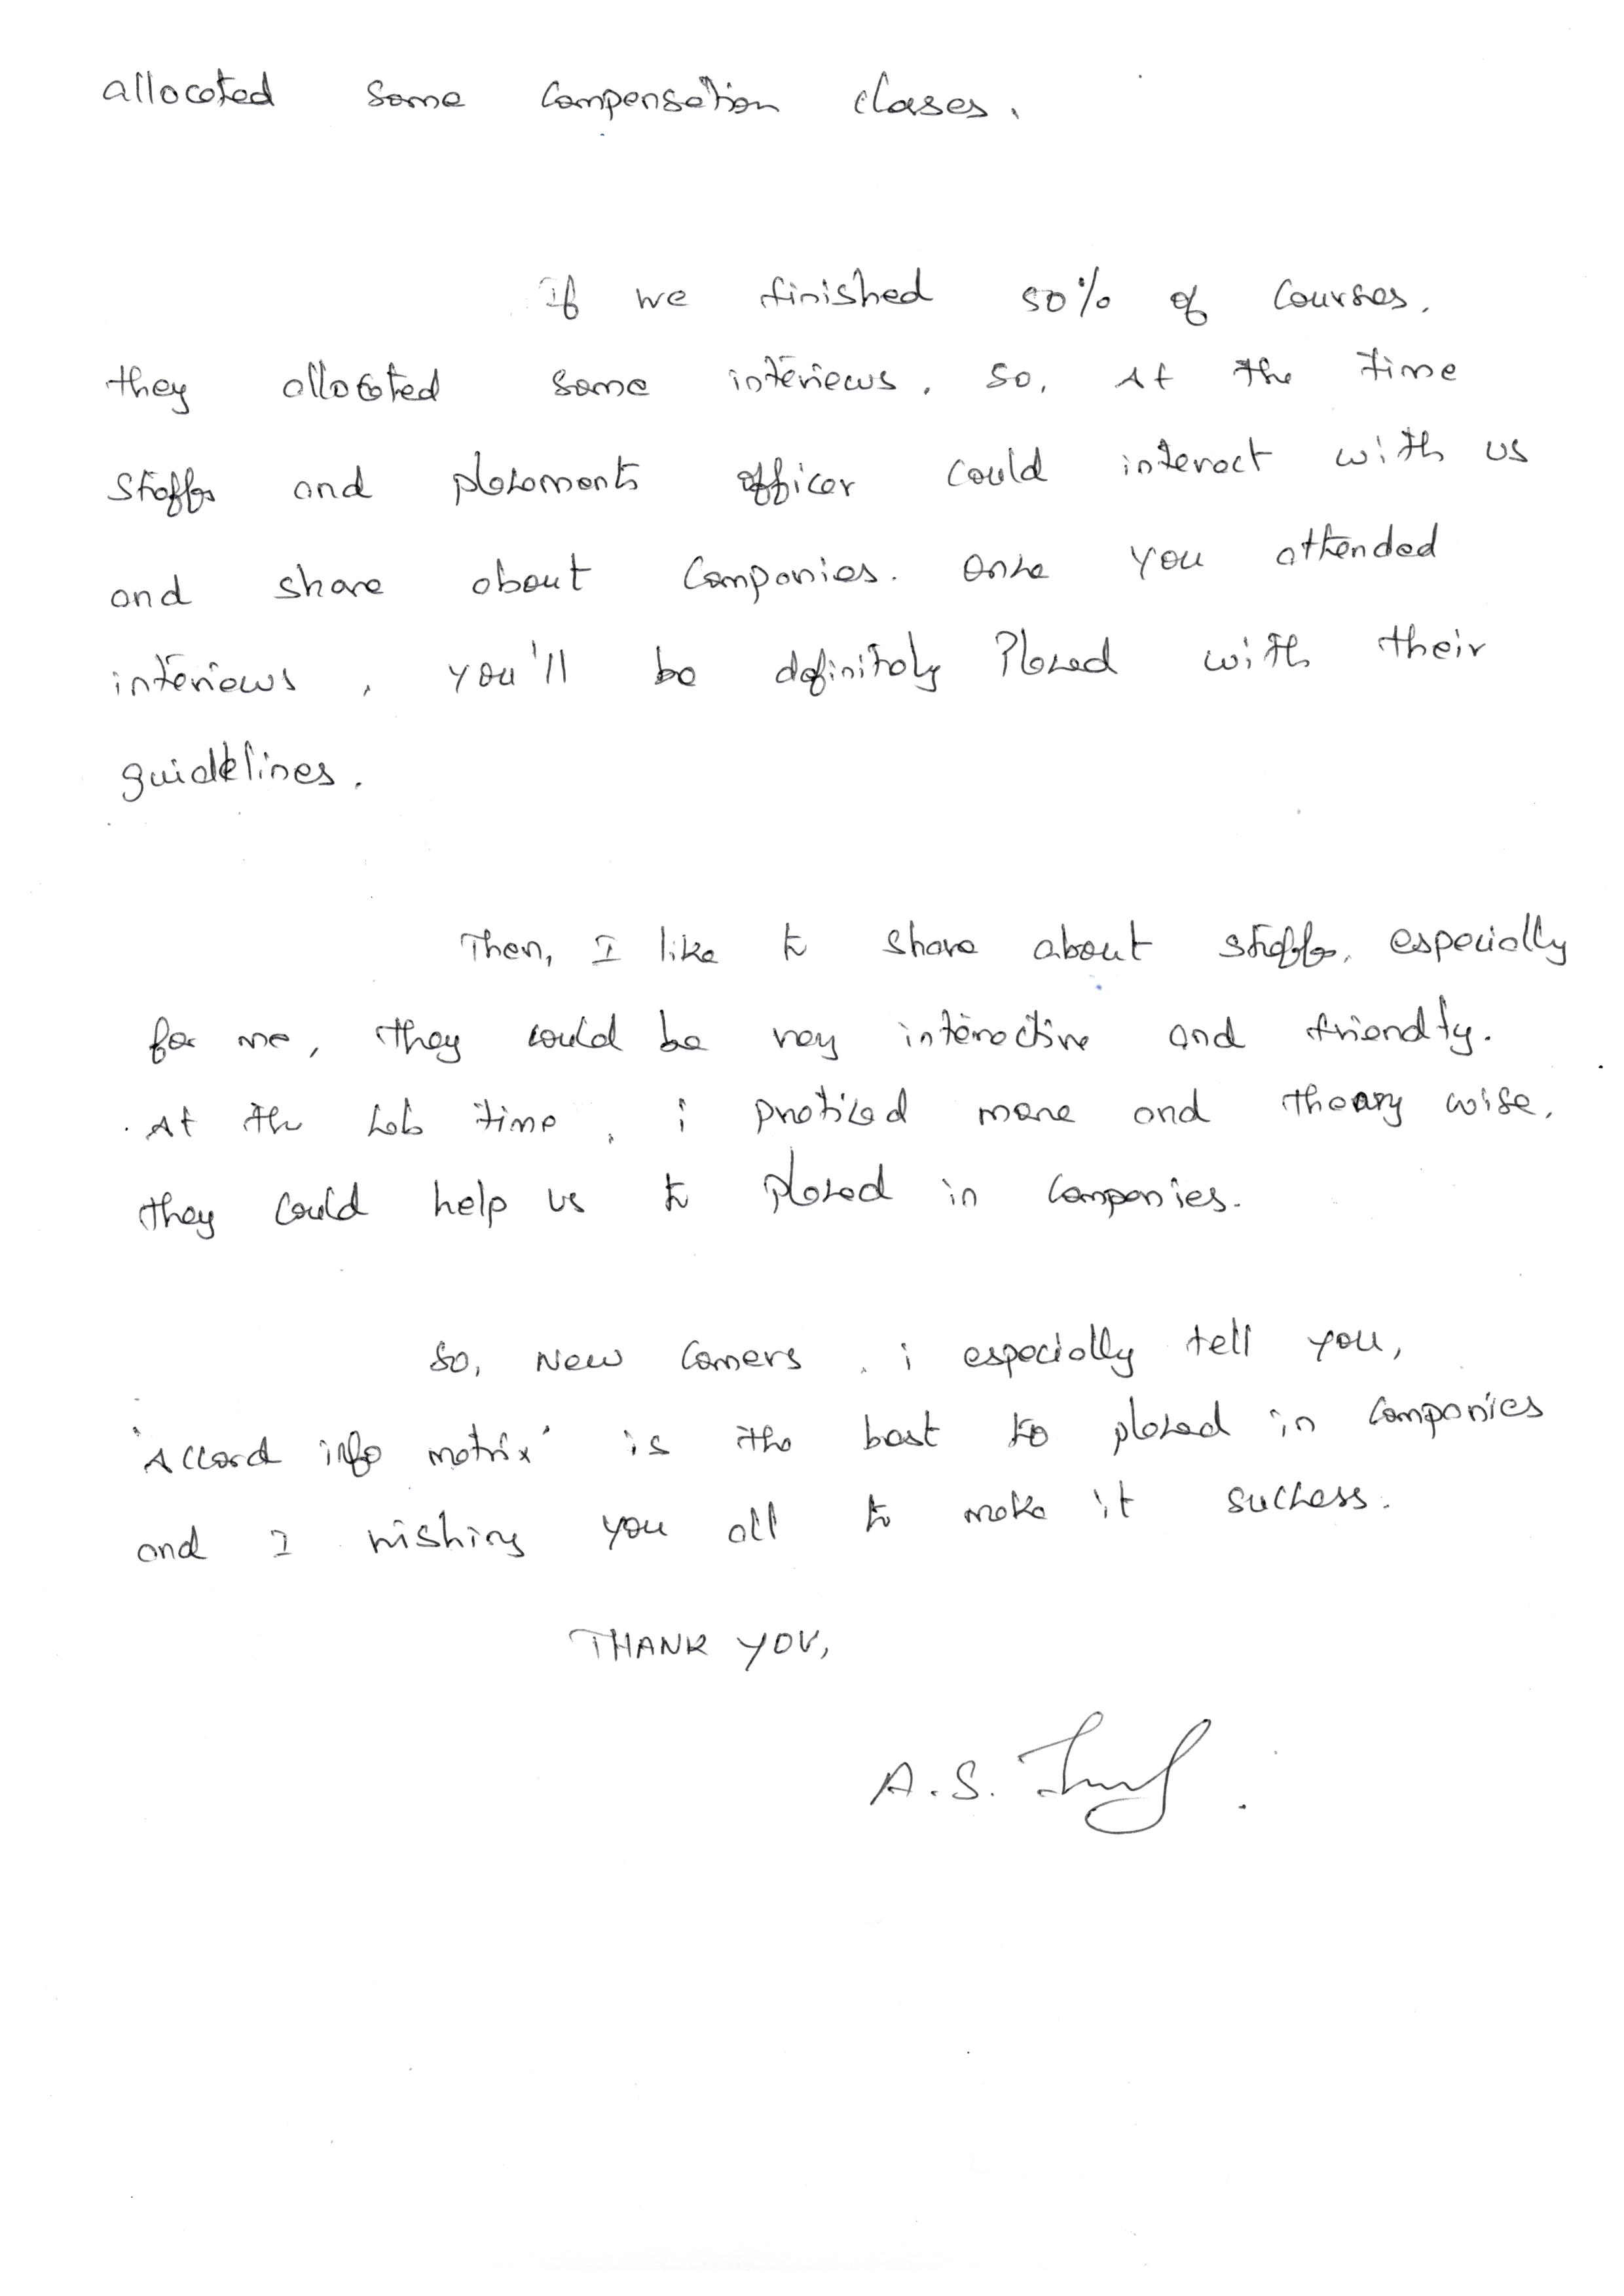 allocated some compensation clases.
If we finished 50% of courses.
they allocated some interiews. so, At the time
Staffs and placements officer could interact with us
and share about companies. Once you attended
interiews, you'll be definitely Placed with their
guidelines.
Then, I like to share about staffs, especially
for me, they could be very interactive and friendly.
At the Lab time, i praticed more and theory wise,
they could help us to placed in companies.
So, New comers, i especially tell you,
'Accord info matrix' is the best to placed in companies
and I wishing you all to make it success.
THANK YOU,
A.S.